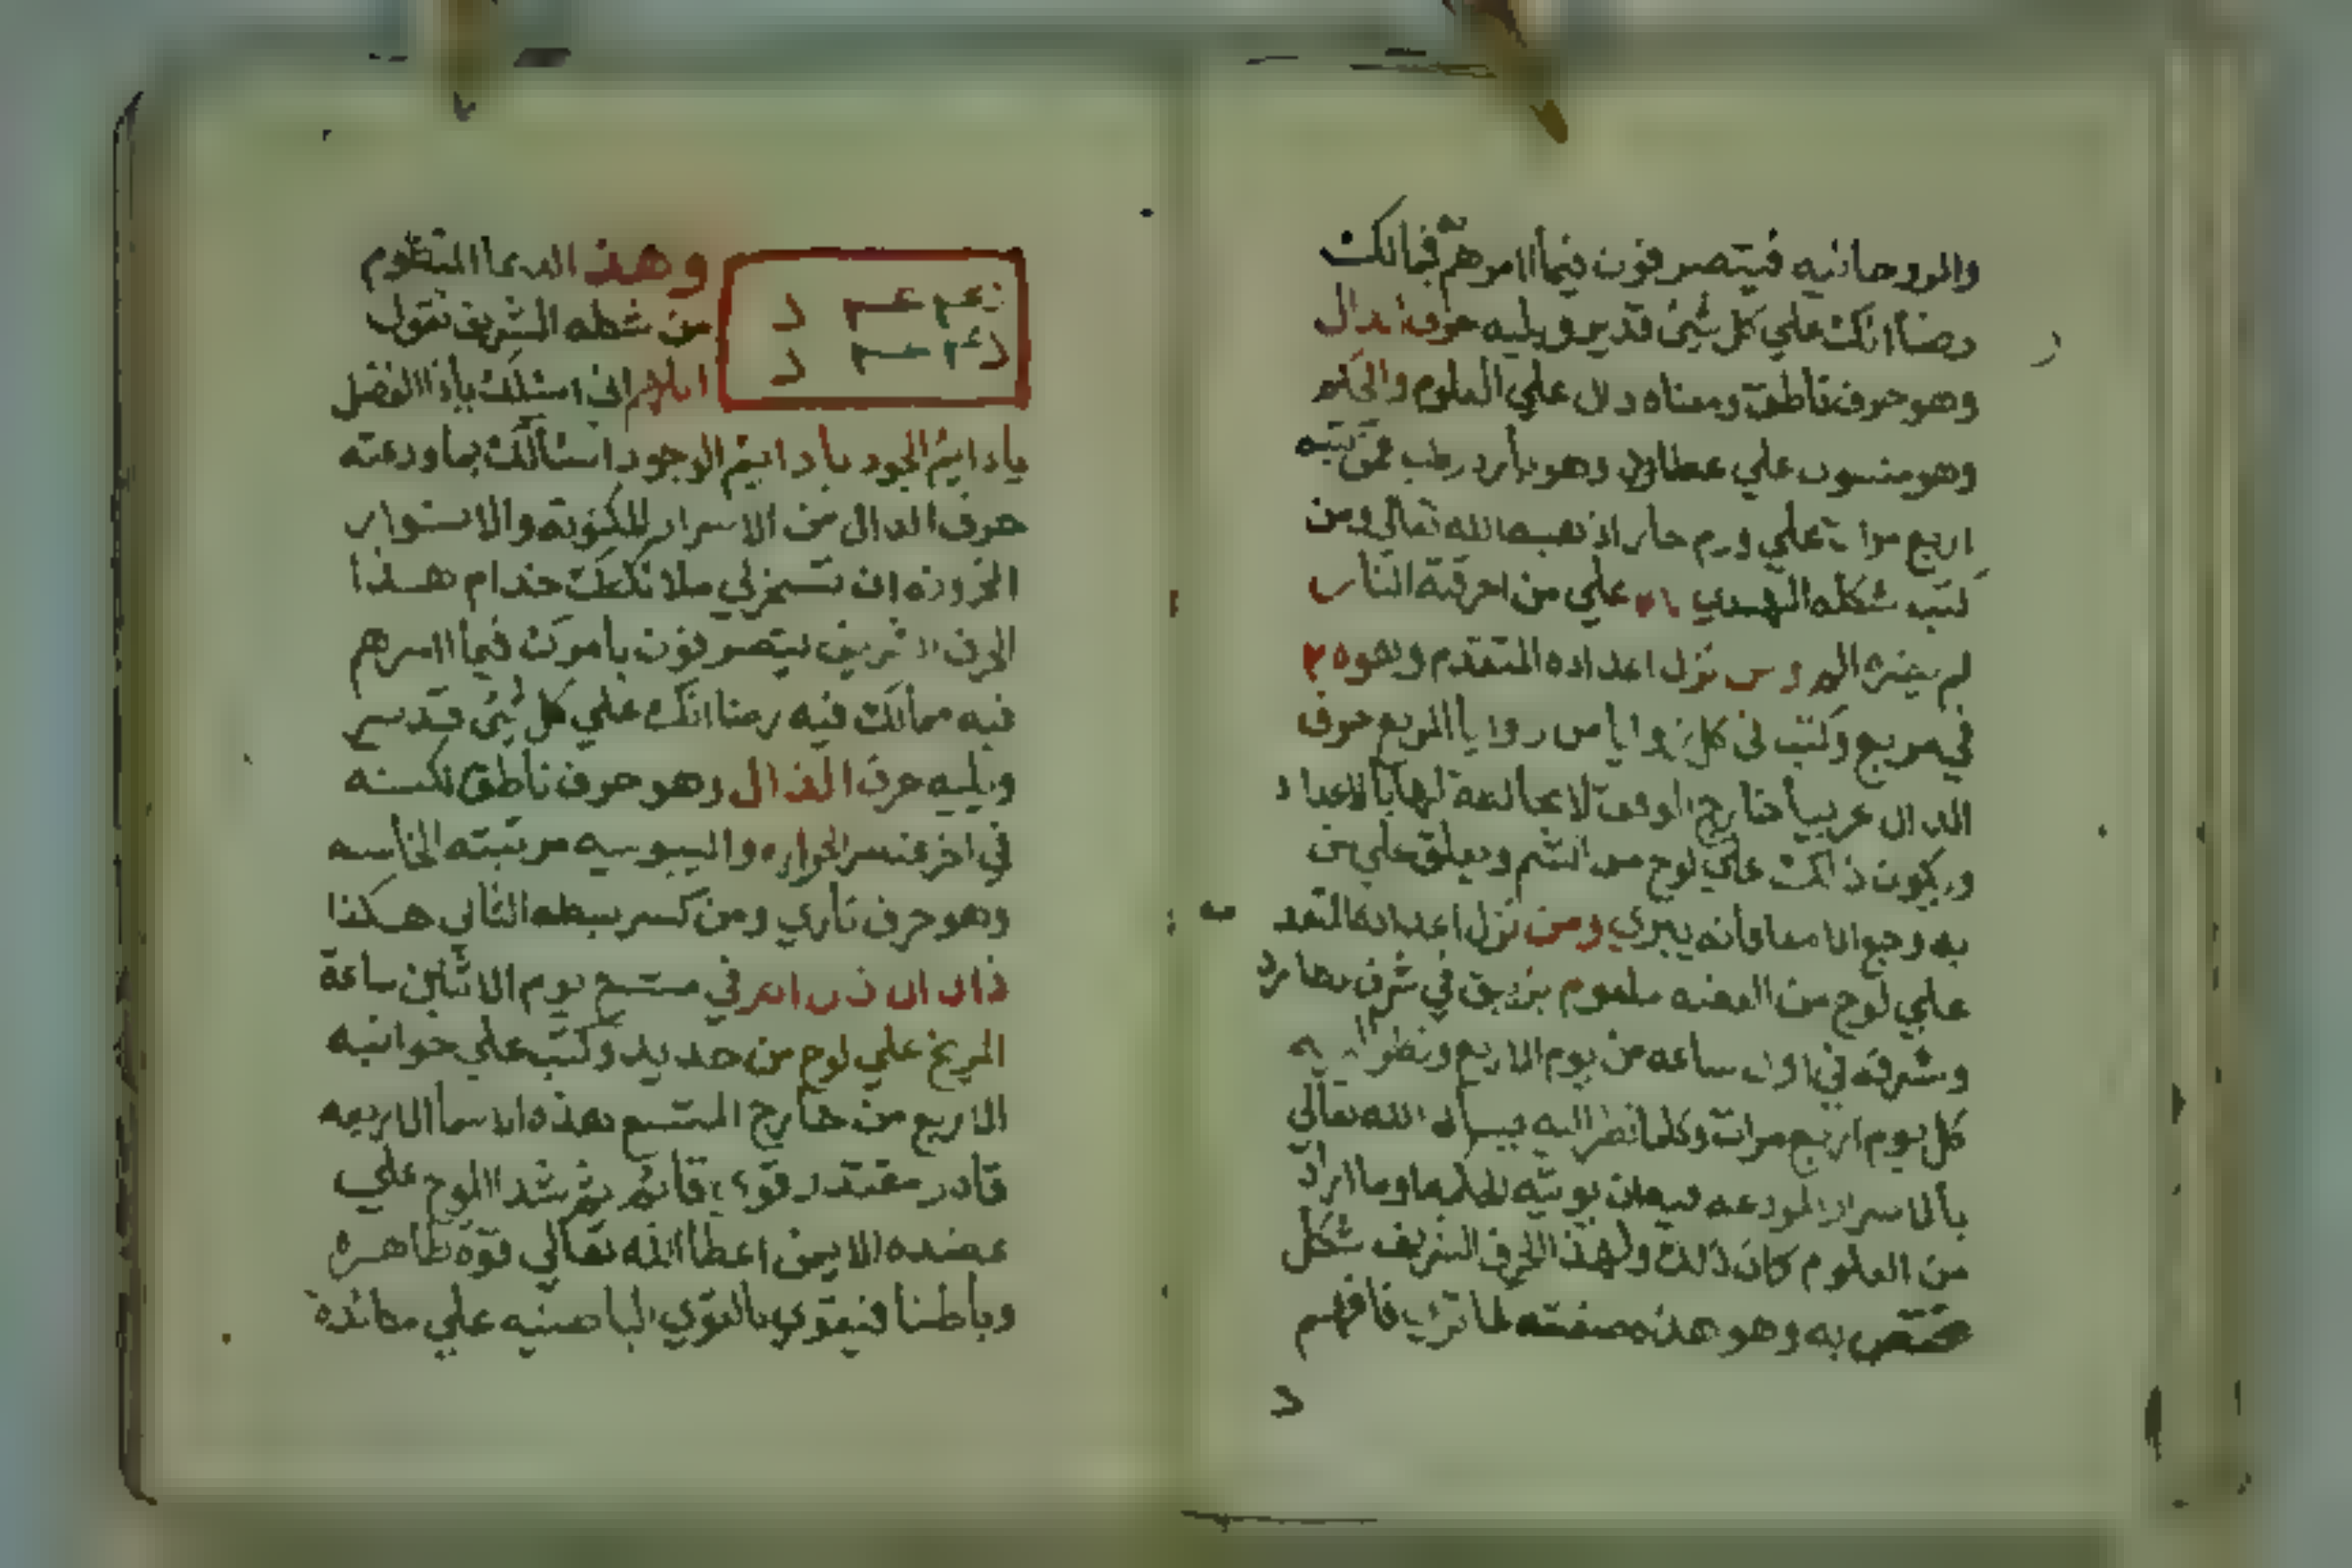 والروحانيه فيتصرفون فيما امرهم فيما لك
رضا انك علي كل شئ قدير ويليه حرف الدال
وهو حرف ناطق ومعناه دال علي العلوم والحكم
وهو منسوب علي عطارد وهو بارد رطب فمن كتبه
اربع مرات علي ورم حار اذهبه الله تعالي ومن
كتب شكله الهندي علي من احرقته النار
لم يضره ومن نزل اعداده المتقدم وهو ه م
في مربع وكتب في كل زوايا من زوايا المربع حرف
الدال عربيا خارج الوفق لا مخالفة لها بالاعداد
ويكون ذلك علي لوح من الشم ويعلق علي من
به وجع انا معافاته يبري ومن نزل اعداده المتقد
مه
علي لوح من الفضه ملغوم بزيبق في شرف عطارد
وشرفه في اول ساعه من يوم الاربع ونظر اليه
كل يوم اربع مرات وكلما نظر اليه يسأل الله تعالي
بالاسرار المودعه فيه ان يوتيه ما اراد
من العلوم كان ذلك ولهذا الحرف الشريف شكل
مختص به وهو هذه صفته كما تري فافهم
د
د عم عم د
د عم عم د
وهذا الدعا المنظوم
من شكله الشريف تقول
اللهم اني اسئلك يا ذا الفضل
يا دايم الجود يا دايم الوجود اسئالك بما ودعته
حرف الدال من الاسرار المكنونه والانوار
المخزونه ان تسخر لي ملائكتك خدام هذا
الحرف الشريف يتصرفون بامرك فيما امرهم
فيه مما لك فيه رضا انك علي كل شئ قدير
ويليه حرف الذال وهو حرف ناطق لكنه
في اخر عنصر الحراره واليبوسيه مرتبته الخامسه
وهو حرف ناري ومن كسر بسطه الثاني هكذا
ذال ال ف ل ام في متسع يوم الاثنين ساعة
المريخ علي لوح من حديد وكتب علي جوانبه
الاربع من خارج المتسع بهذه الاسما الاربعه
قادر مقتدر قوي قائم ثم شد اللوح علي
عضده الايمن اعطا الله تعالي قوة ظاهره
وباطنا فيقوي بالقوي الباطنيه علي